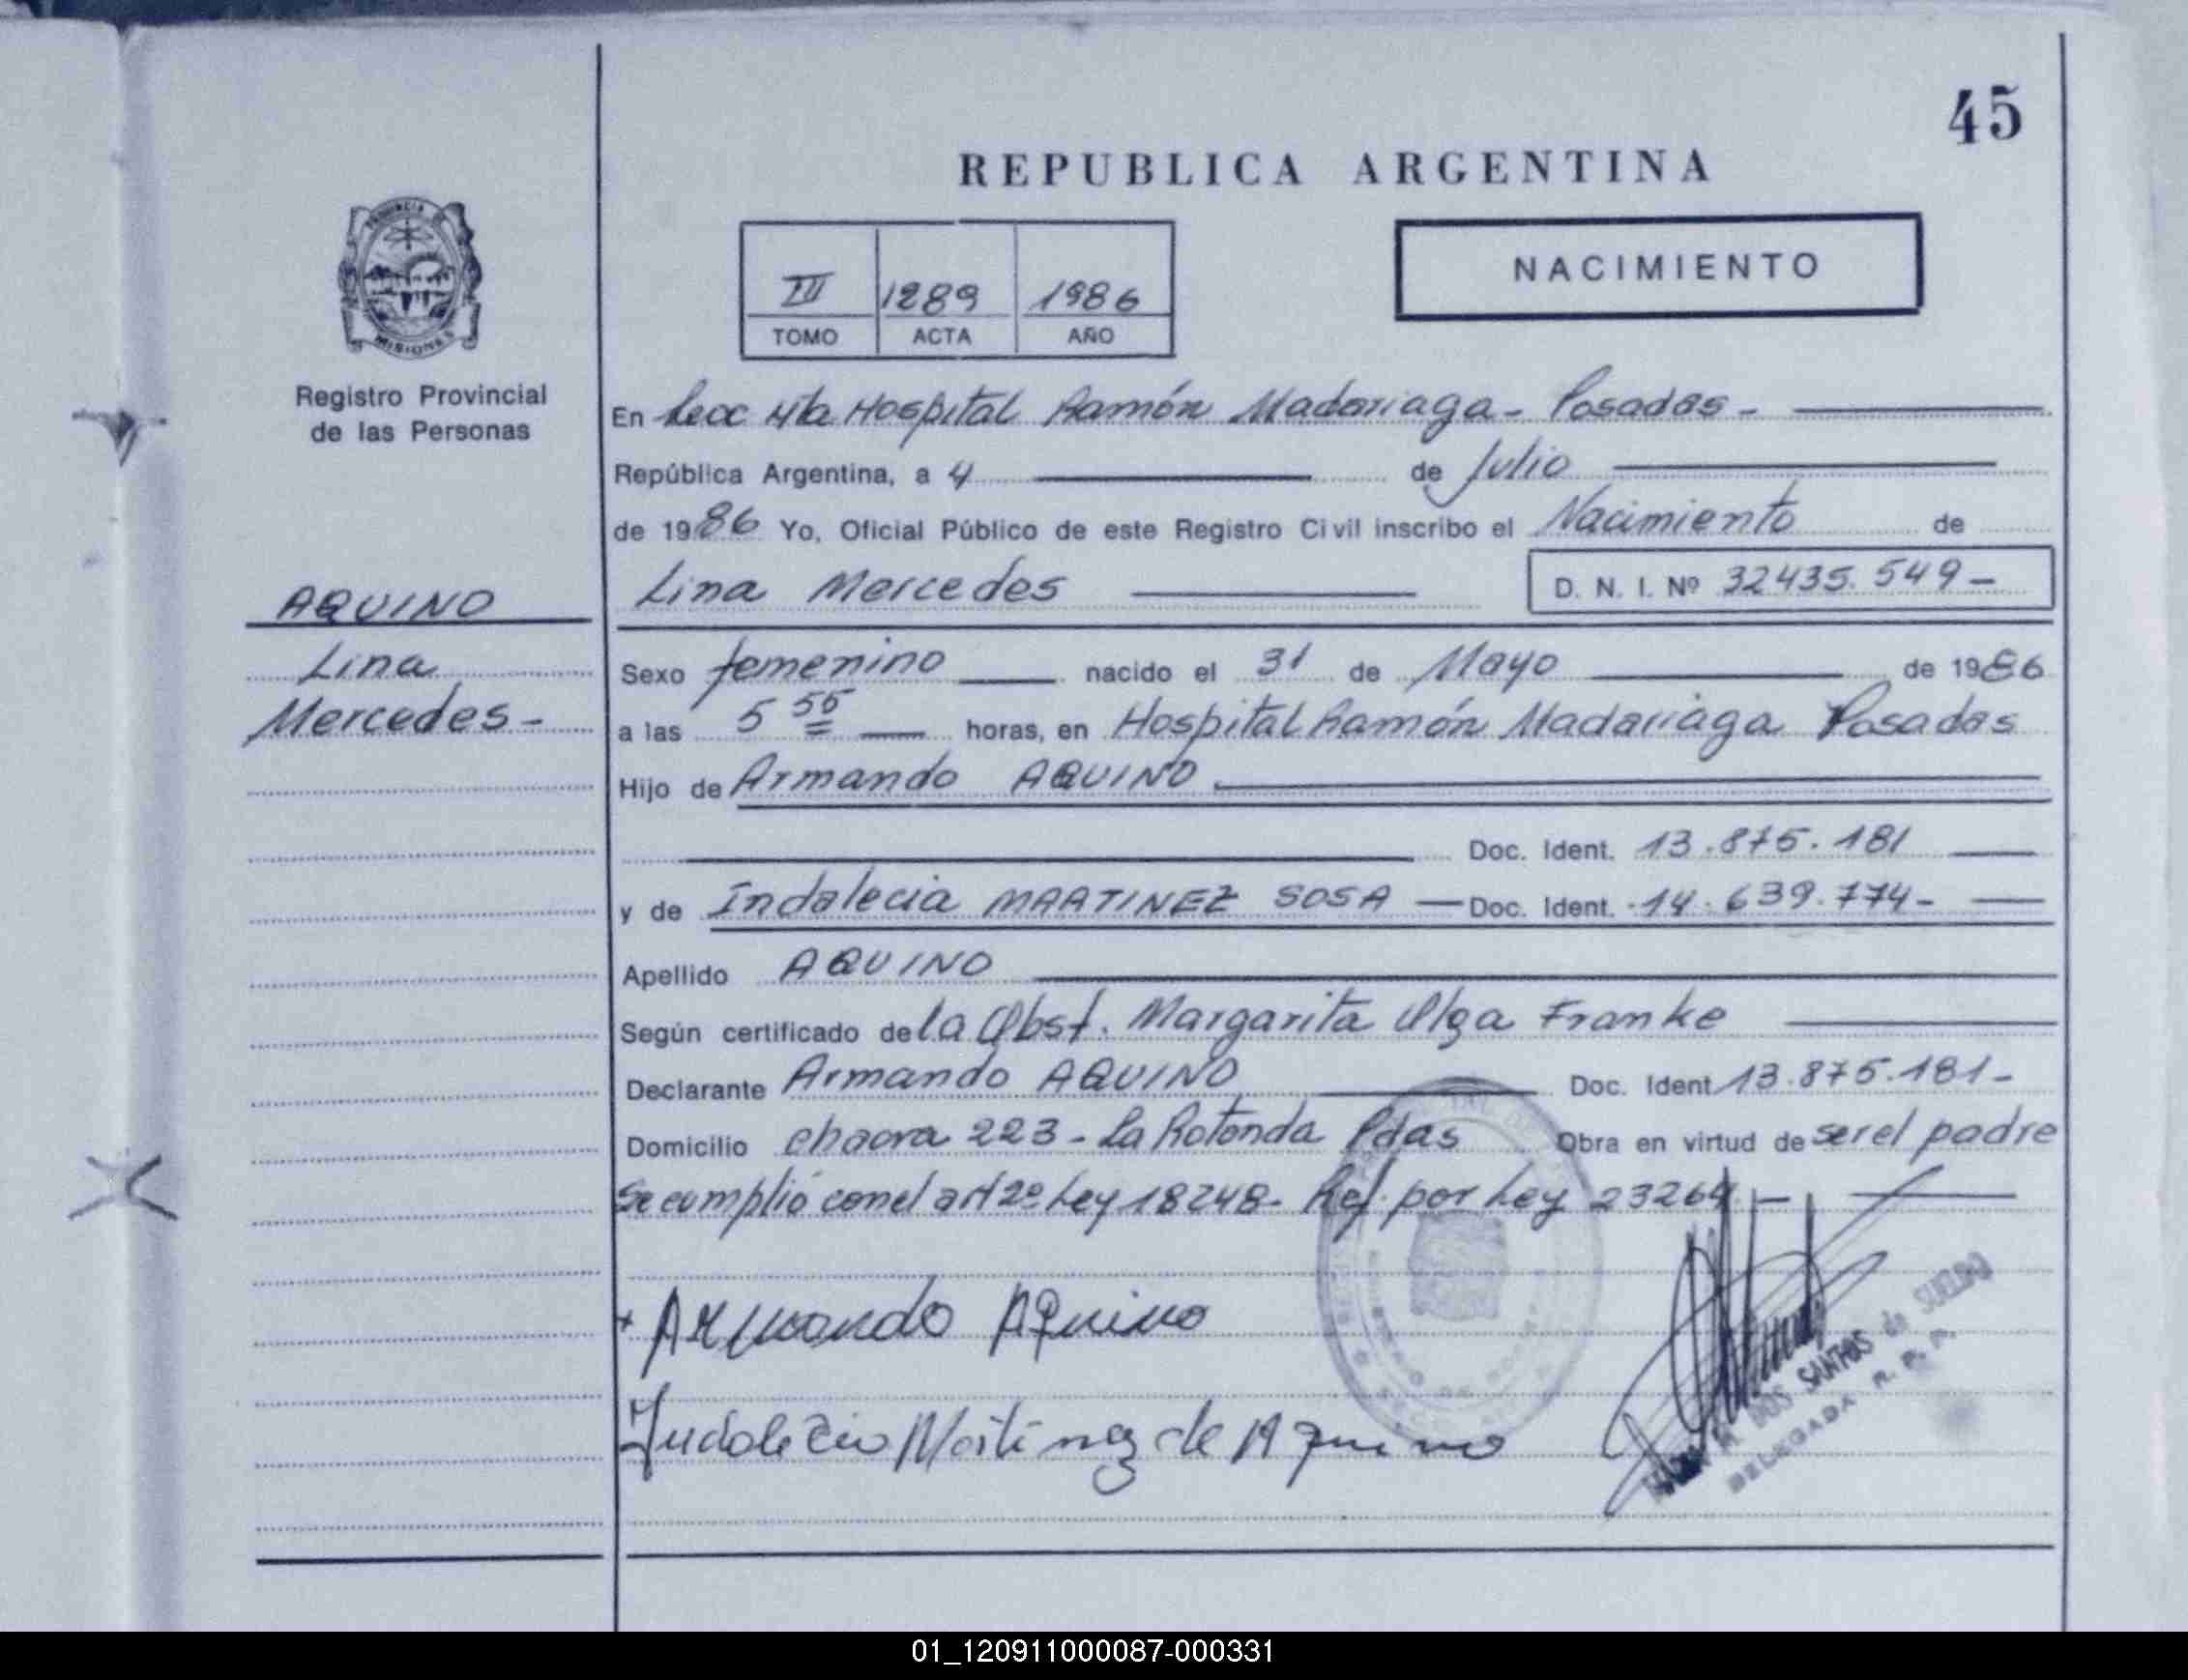 45
REPUBLICA ARGENTINA
PROVINCIA DE
MISIONES
Registro Provincial
de las Personas
III 1289 1986
TOMO ACTA AÑO
NACIMIENTO
En Secc 4ta Hospital Ramón Madariaga - Posadas -
República Argentina, a 4 de Julio
de 1986 Yo, Oficial Público de este Registro Civil inscribo el Nacimiento de
Lina Mercedes D. N. I. Nº 32435.549 -
AQUINO
Lina
Mercedes -
Sexo femenino nacido el 31 de Mayo de 1986
a las 5 55 horas, en Hospital Ramón Madariaga Posadas
Hijo de Armando AQUINO
Doc. Ident. 13.875.181
y de Indalecia MARTINEZ SOSA - Doc. Ident. 14.639.774 -
Apellido AQUINO
Según certificado de la Obst. Margarita Olga Franke
Declarante Armando AQUINO Doc. Ident 13.875.181 -
Domicilio chacra 223 - La Rotonda Pdas Obra en virtud de ser el padre
Se cumplió con el art 2º Ley 18248 - Ref. por Ley 23264 -
+ Armando Aquino
Indalecia Martinez de Aquino
DOS SANTOS de SUELDO
DELEGADA R. P. P.
01_120911000087-000331